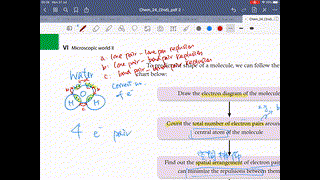 Chem_24_(2nd).pdf
VI Microscopic world II
a. lone pair - lone pair repulsion
b. lone pair - bond pair repulsion
c. bond pair - bond pair repulsion
To predict the shape of a molecule, we can follow the
chart below:
water
correct no.
of e⁻
H
H
4 e⁻ pair
Draw the electron diagram of the molecule
Count the total number of electron pairs around
central atom of the molecule
Find out the spatial arrangement of electron pairs
can minimize the repulsions between them